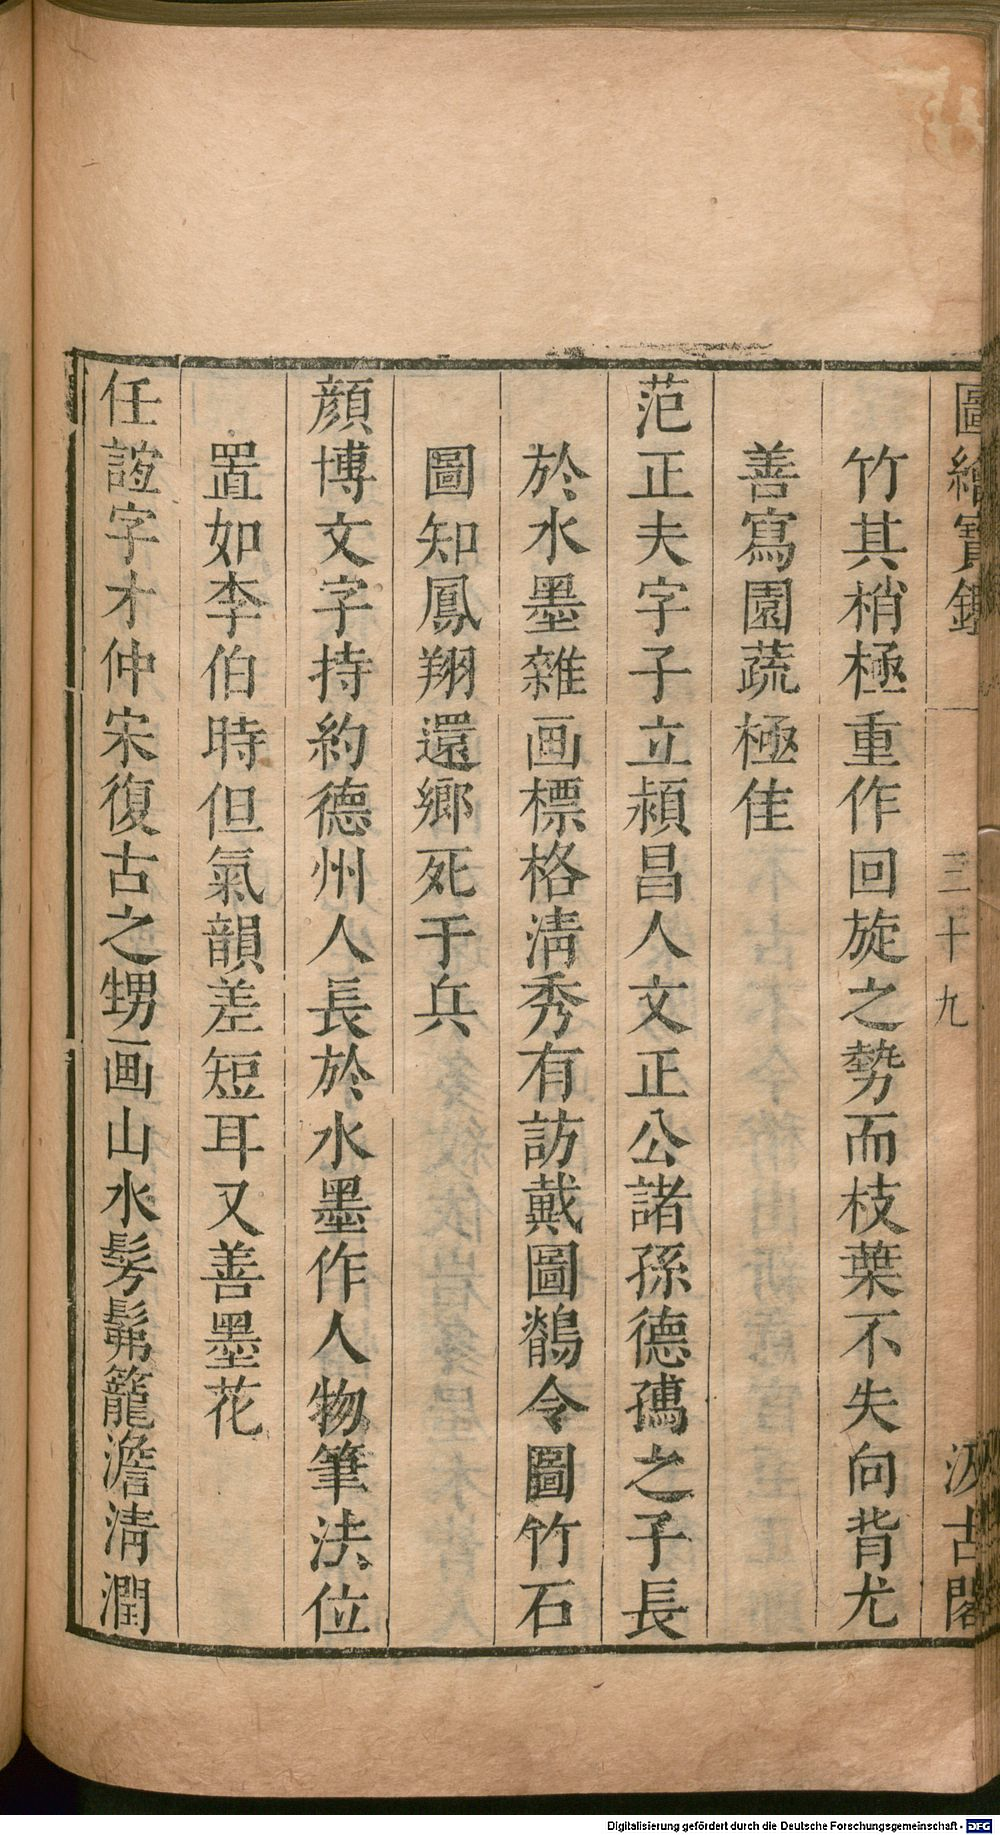 圖繪寶鑑 三十九 汲古閣
竹其梢極重作回旋之勢而枝葉不失向背尤
善寫園蔬極佳
范正夫字子立潁昌人文正公諸孫德孺之子長
於水墨雜画標格清秀有訪戴圖鶺令圖竹石
圖知鳳翔還鄉死于兵
顔博文字持約德州人長於水墨作人物筆法位
置如李伯時但氣韻差短耳又善墨花
任誼字才仲宋復古之甥画山水髣髴籠澹清潤
Digitalisierung gefördert durch die Deutsche Forschungsgemeinschaft - DFG